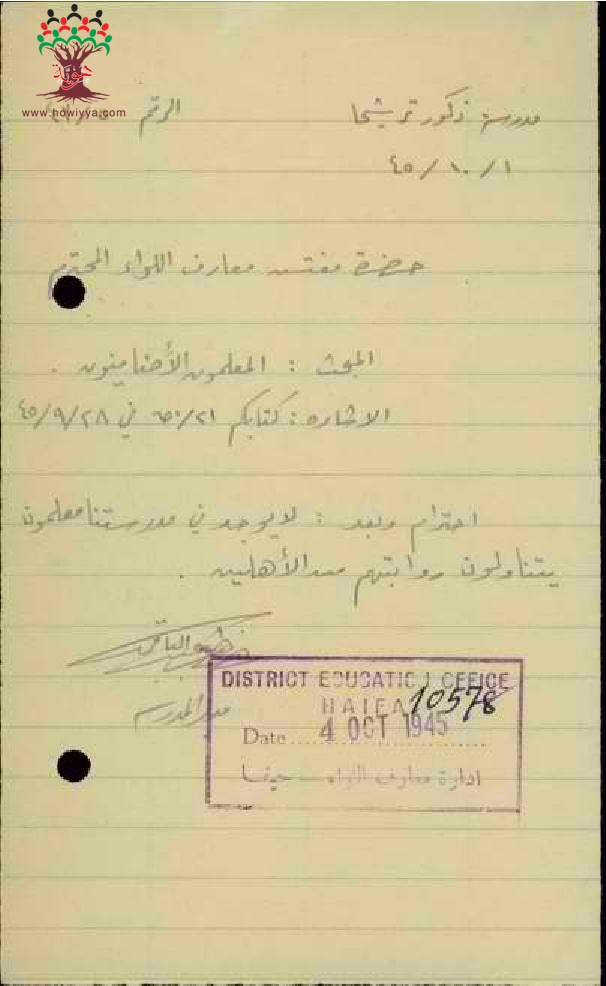 هوية
www.howiyya.com
مدرسة ذكور ترشيحا الرقم
٤٥/١٠/١
حضرة مفتش معارف اللواء المحترم
المبحث : المعلمون الأضافيون .
الاشاره : كتابكم في ٤٥/٩/٢٨
احترام وبعد : لا يوجد في مدرستنا معلمون
يتناولون رواتبهم من الأهلين .
مدير المدرسة
DISTRICT EDUCATION OFFICE
HAIFA 10578
Date 4 OCT 1945
ادارة معارف اللواء - حيفا